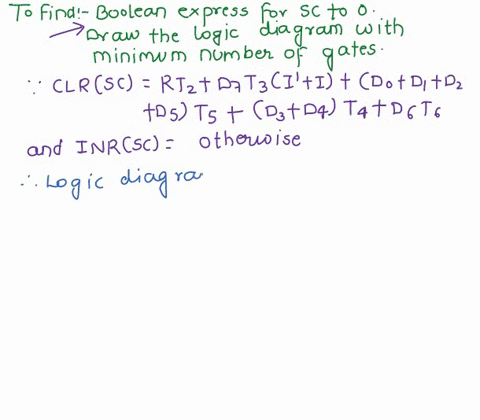 To Find:- Boolean express for SC to 0.
→ Draw the logic diagram with
minimum number of gates.
∵ CLR(SC) = RT₂ + D₇T₃(I'+I) + (D₀+D₁+D₂
+D₅) T₅ + (D₃+D₄) T₄ + D₆T₆
and INR(SC) = otherwoise
∴ Logic diagra